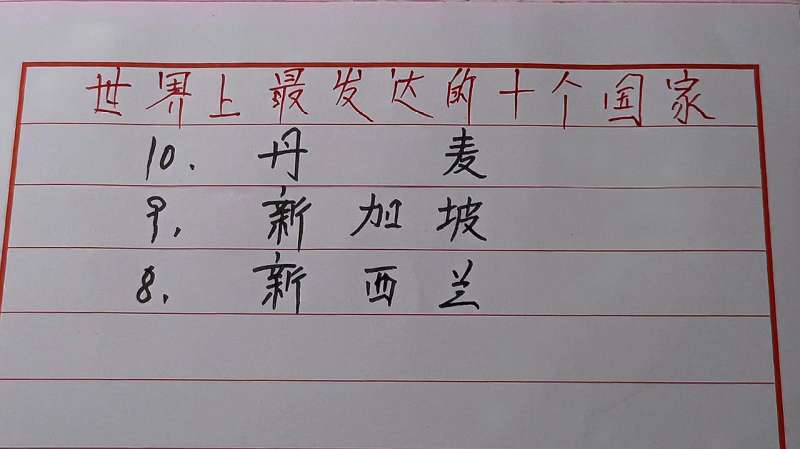 世界上最发达的十个国家
10. 丹 麦
9. 新加坡
8. 新西兰